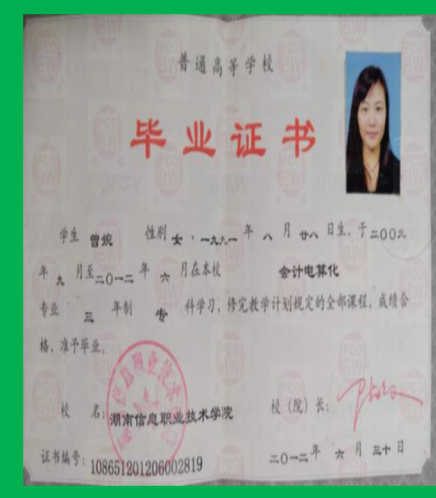 普通高等学校
毕业证书
学生 曾婉 性别 女，一九九一 年 八 月 廿八 日生，于二00九
年 九 月至二0一二 年 六 月在本校 会计电算化
专业 三 年制 专 科学习，修完教学计划规定的全部课程，成绩合
格，准予毕业。
校 名：湖南信息职业技术学院 校（院）长：
证书编号：108651201206002819 二0一二年 六 月 三十 日